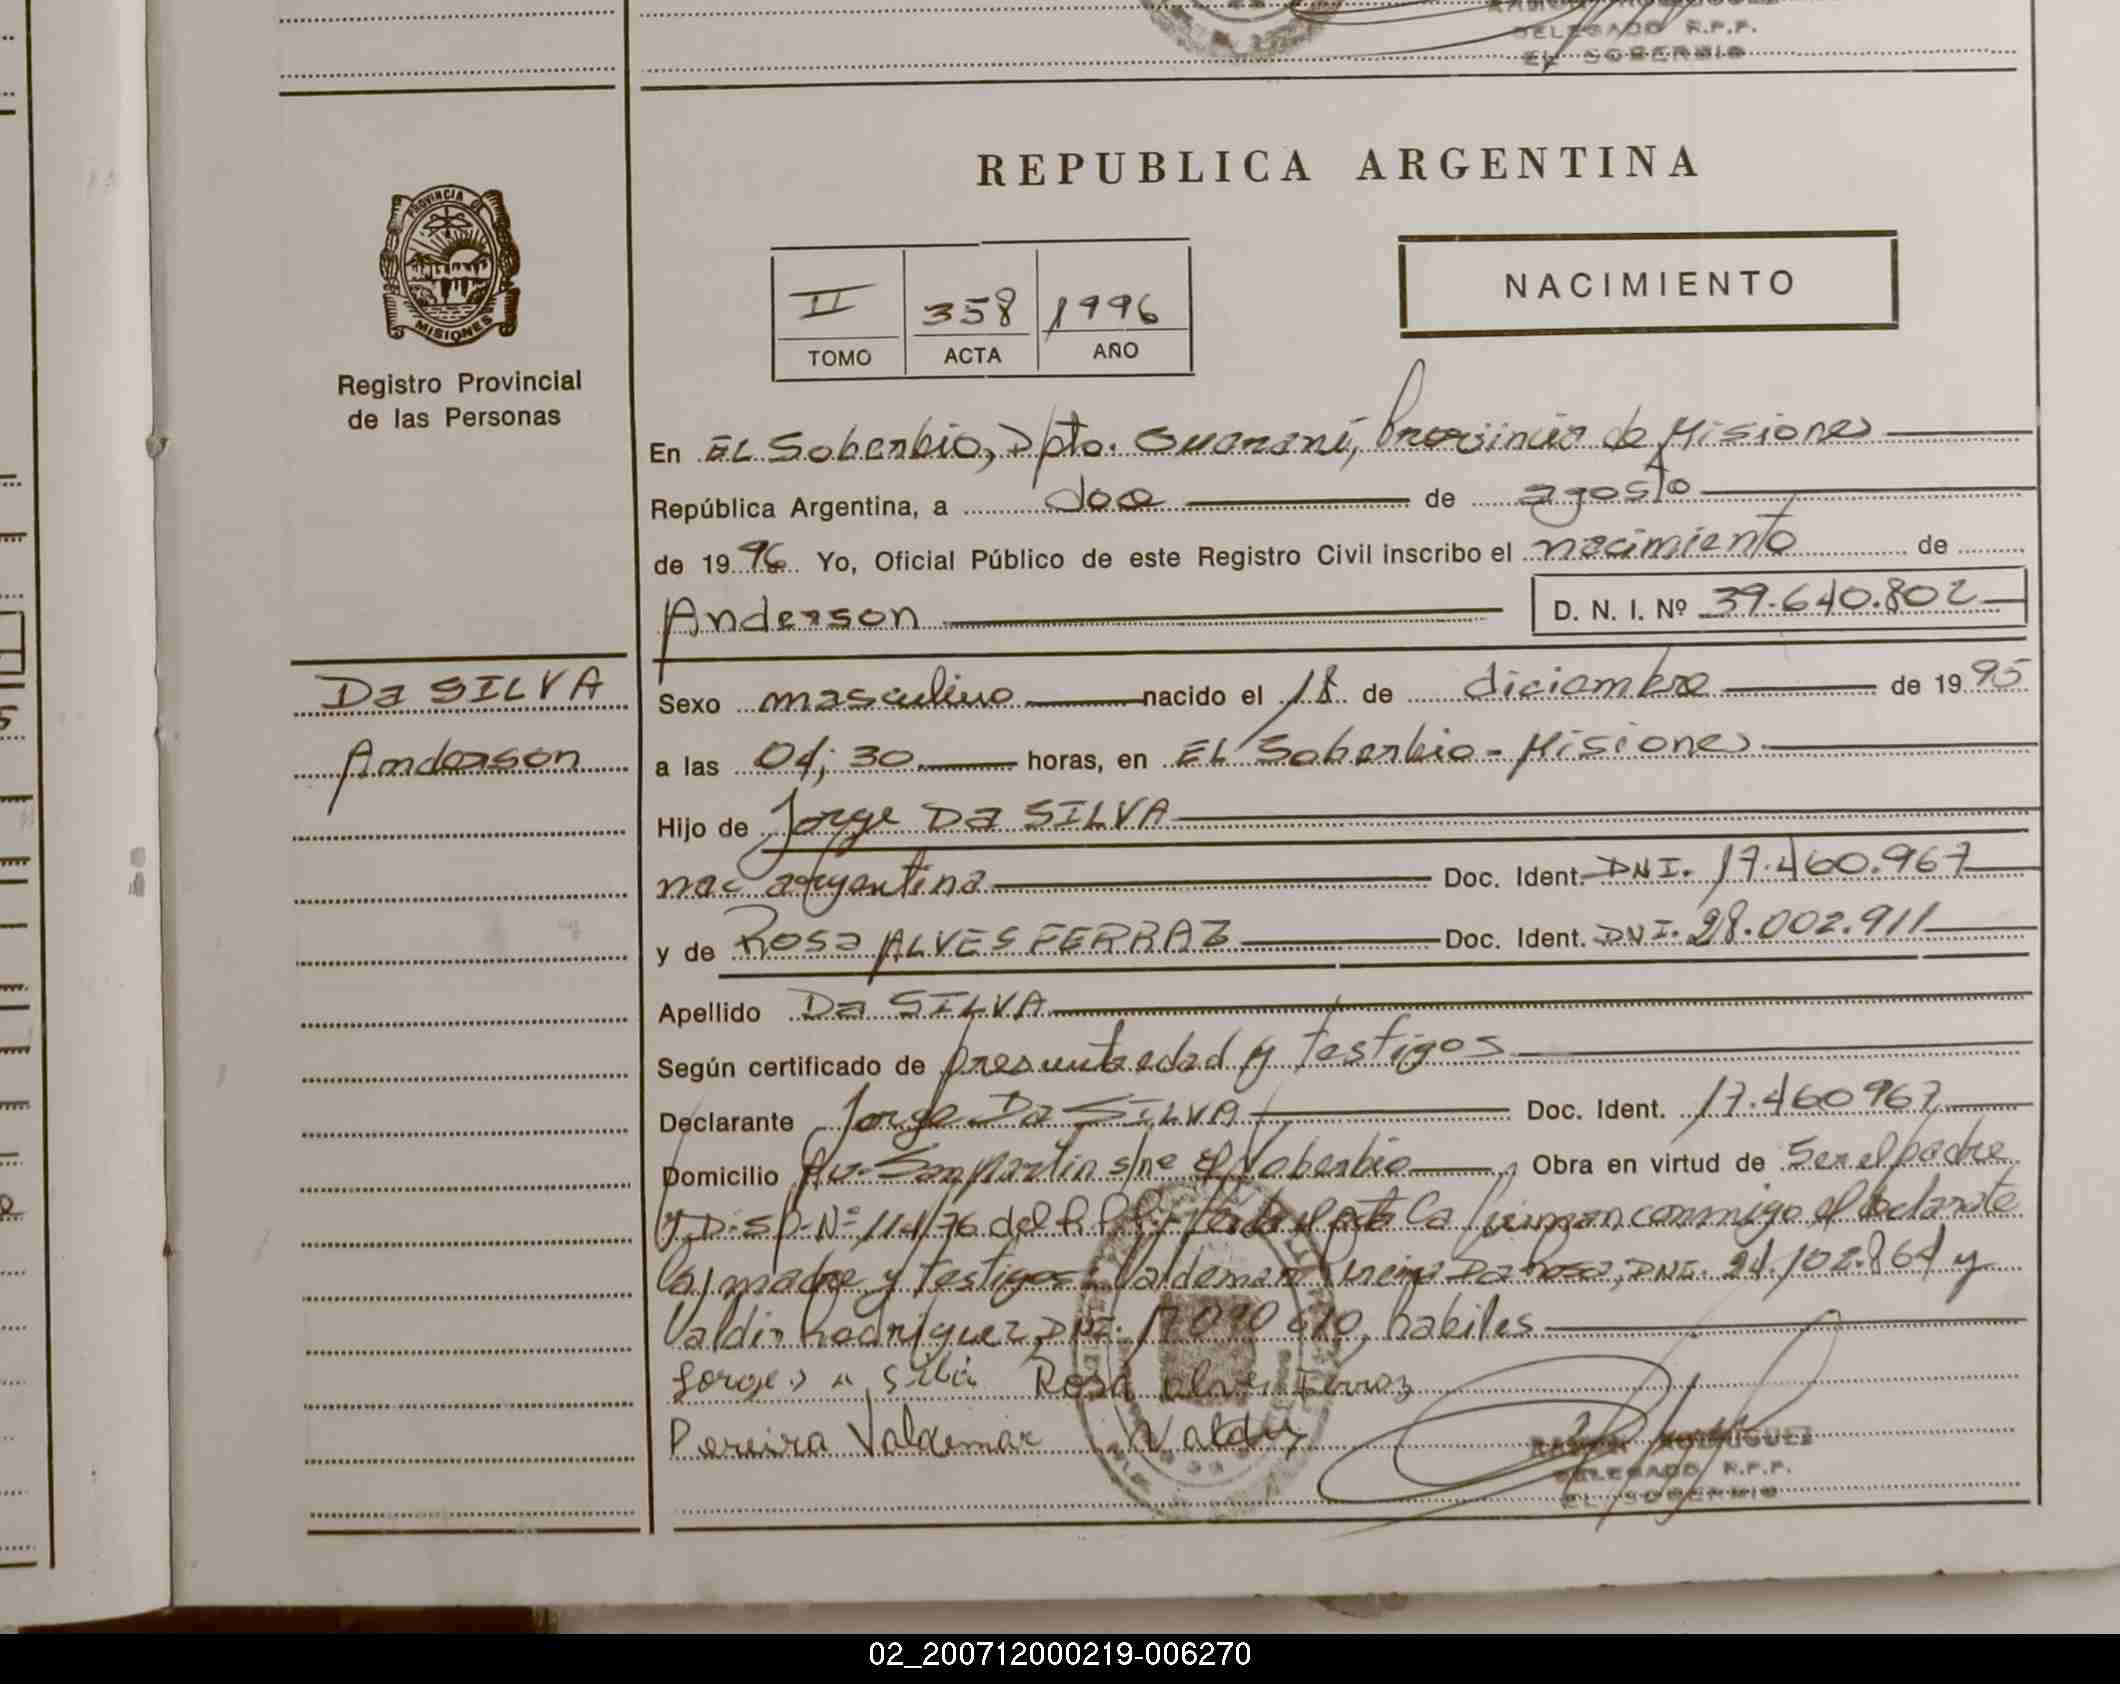 DELEGADO R.P.P.
EL SOBERBIO
REPUBLICA ARGENTINA
NACIMIENTO
II 358 1996
TOMO ACTA AÑO
PROVINCIA DE
MISIONES
Registro Provincial
de las Personas
En EL Soberbio, Dpto. Guaraní, Provincia de Misiones
República Argentina, a doce de agosto
de 1996 Yo, Oficial Público de este Registro Civil inscribo el nacimiento de
Anderson D. N. I. Nº 39.640.802
Da SILVA
Anderson
Sexo masculino nacido el 18 de diciembre de 1995
a las 04;30 horas, en EL Soberbio - Misiones
Hijo de Jorge Da SILVA
nac argentina Doc. Ident. DNI. 17.460.967
y de Rosa ALVES FERRAZ Doc. Ident. DNI. 28.002.911
Apellido Da SILVA
Según certificado de presunta edad y testigos
Declarante Jorge Da SILVA Doc. Ident. 17.460967
Domicilio Av. San Martin s/nº El Soberbio Obra en virtud de Ser el padre
y D.SP. Nº 114/76 del R.P.P. Leida el acta la firman conmigo el declarante
la madre y testigos: Valdemar Pereira Da Rosa, DNI. 24.102.864 y
Valdir Rodriguez, DNI. 17.090.610, habiles
Jorge Da Silva Rosa alves Ferraz
Pereira Valdemar Valdir
RAMON RODRIGUEZ
DELEGADO R.P.P.
EL SOBERBIO
02_200712000219-006270